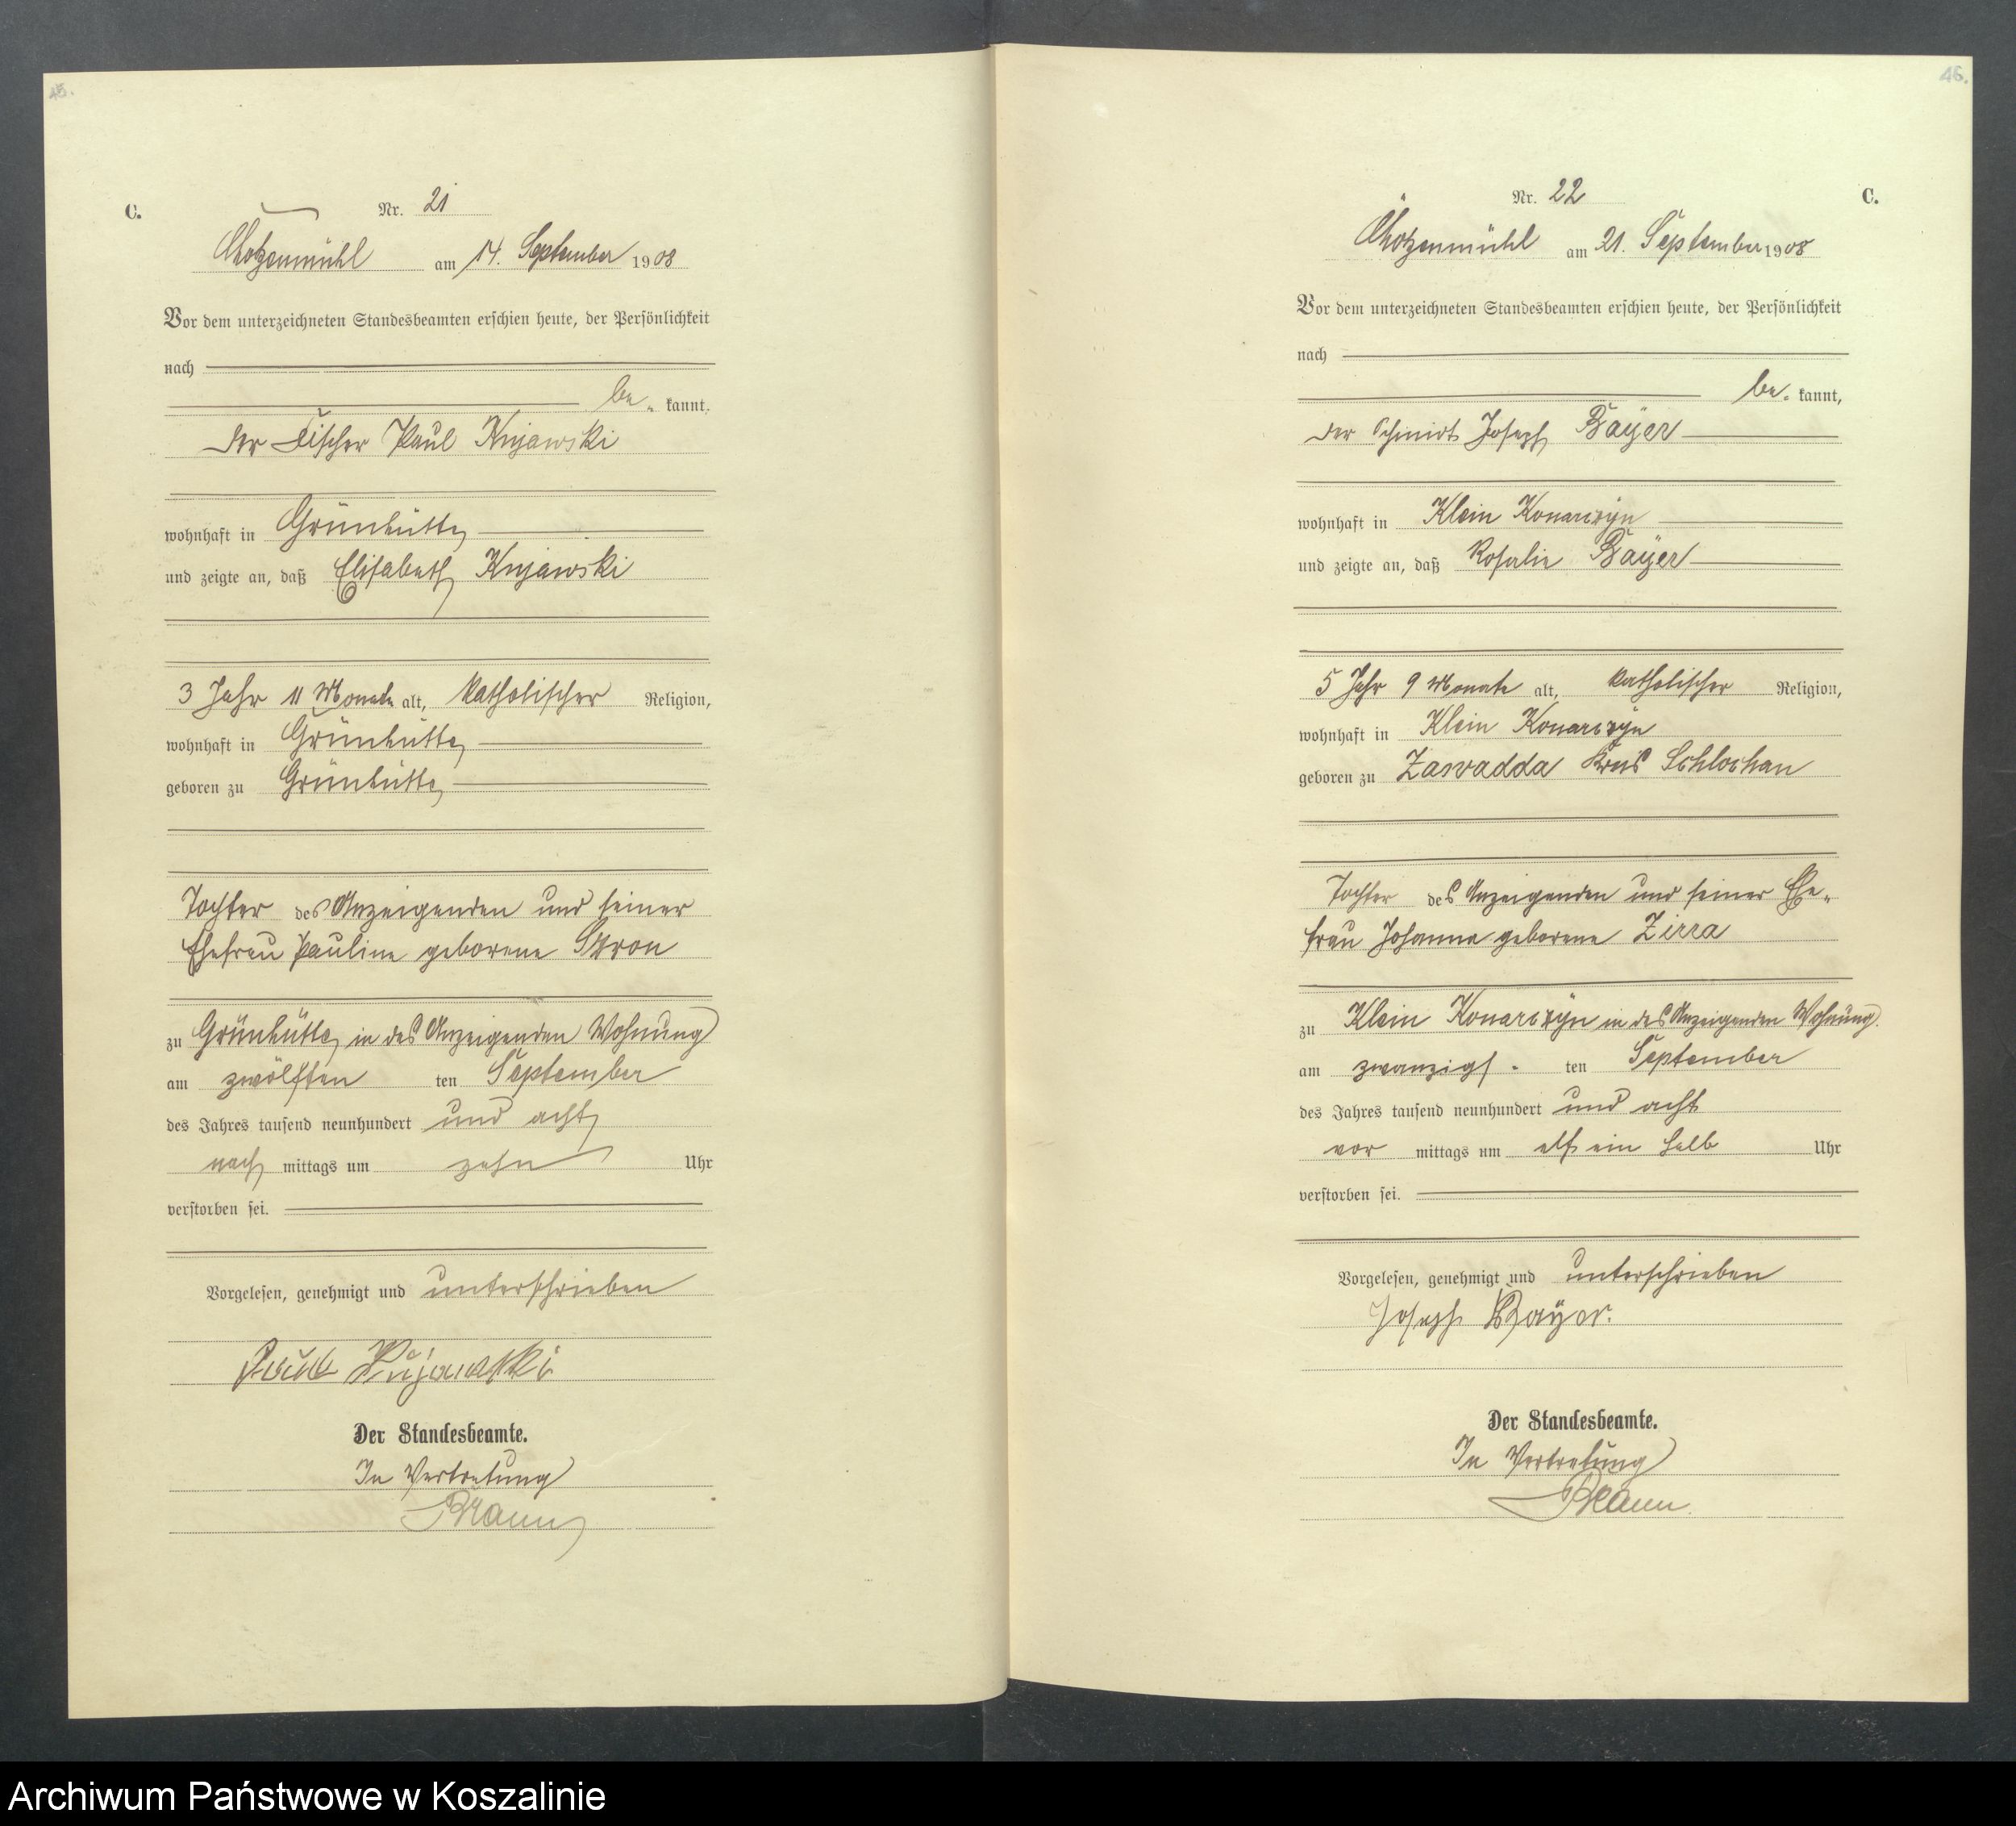 45.
C.
Nr. 21
Chotzenmühl am 14. September 1908
Vor dem unterzeichneten Standesbeamten erschien heute, der Persönlichkeit
nach
be- kannt,
der Fischer Paul Kujawski
wohnhaft in Grünhütte
und zeigte an, daß Elisabeth Kujawski
3 Jahr 11 Monate alt, katholischer Religion,
wohnhaft in Grünhütte
geboren zu Grünhütte
Tochter des Anzeigenden und seiner
Ehefrau Pauline geborene
zu Grünhütte, in des Anzeigenden Wohnung
am zwölften ten September
des Jahres tausend neunhundert und acht
nach mittags um zehn Uhr
verstorben sei.
Vorgelesen, genehmigt und unterschrieben
Paul Kujawski
Der Standesbeamte.
In Vertretung
46.
Nr. 22
C.
Chotzenmühl am 21. September 1908
Vor dem unterzeichneten Standesbeamten erschien heute, der Persönlichkeit
nach
be- kannt,
der Schmidt Joseph Bayer
wohnhaft in Klein Konarczyn
und zeigte an, daß Rosalie Bayer
5 Jahr 9 Monate alt, katholischer Religion,
wohnhaft in Klein Konarczyn
geboren zu Zawadda Kreis Schlochau
Tochter des Anzeigenden und seiner Ehe-
frau Johanna geborene Zirra
zu Klein Konarczyn in des Anzeigenden Wohnung.
am zwanzigs- ten September
des Jahres tausend neunhundert und acht
vor mittags um elf ein halb Uhr
verstorben sei.
Vorgelesen, genehmigt und unterschrieben
Joseph Bayer.
Der Standesbeamte.
In Vertretung
Archiwum Państwowe w Koszalinie